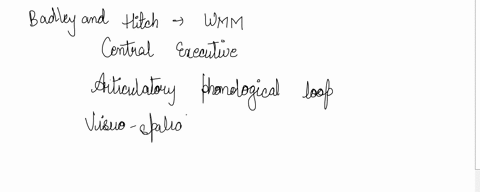 Badley and Hitch → WMM
Central Executive
Articulatory phonological loop
Visuo-spatio